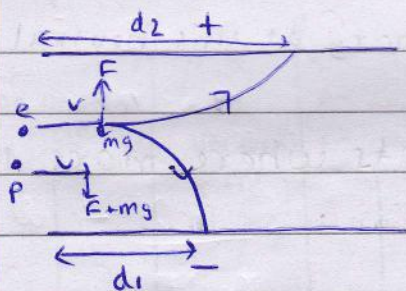 d2 +
F
e v
mg
P v
F+mg
d1 −